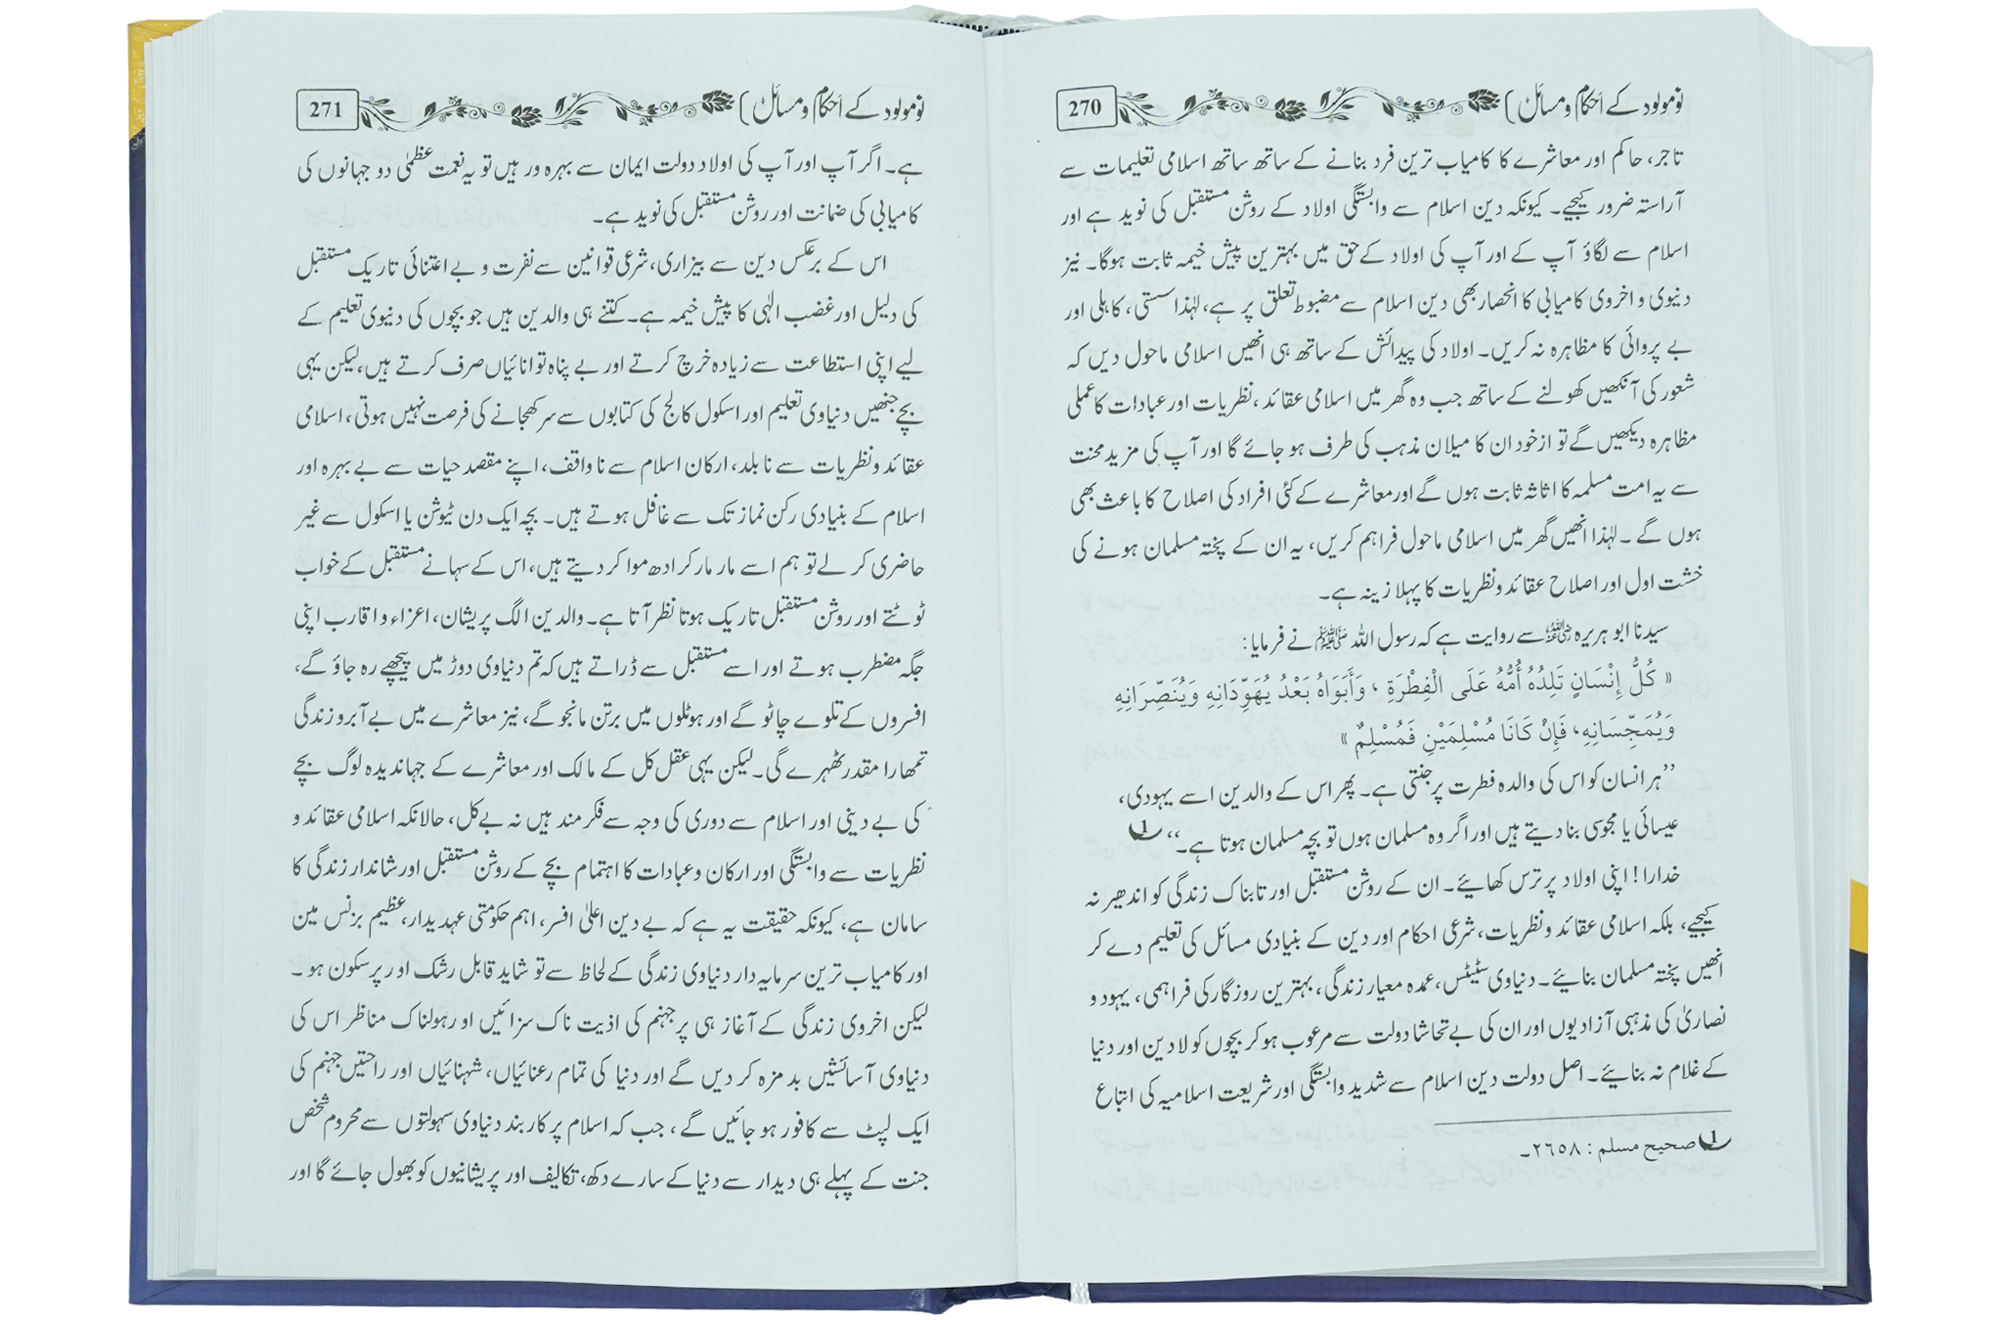 نومولود کے احکام و مسائل
270
تاجر، حاکم اور معاشرے کا کامیاب ترین فرد بنانے کے ساتھ ساتھ اسلامی تعلیمات سے
آراستہ ضرور کیجیے۔ کیونکہ دین اسلام سے وابستگی اولاد کے روشن مستقبل کی نوید ہے اور
اسلام سے لگاؤ آپ کے اور آپ کی اولاد کے حق میں بہترین پیش خیمہ ثابت ہوگا۔ نیز
دنیوی و اخروی کامیابی کا انحصار بھی دین اسلام سے مضبوط تعلق پر ہے، لہٰذا سستی، کاہلی اور
بے پروائی کا مظاہرہ نہ کریں۔ اولاد کی پیدائش کے ساتھ ہی انھیں اسلامی ماحول دیں کہ
شعور کی آنکھیں کھولنے کے ساتھ جب وہ گھر میں اسلامی عقائد، نظریات اور عبادات کا عملی
مظاہرہ دیکھیں گے تو از خود ان کا میلان مذہب کی طرف ہو جائے گا اور آپ کی مزید محنت
سے یہ امت مسلمہ کا اثاثہ ثابت ہوں گے اور معاشرے کے کئی افراد کی اصلاح کا باعث بھی
ہوں گے۔ لہٰذا انھیں گھر میں اسلامی ماحول فراہم کریں، یہ ان کے پختہ مسلمان ہونے کی
خشت اول اور اصلاح عقائد و نظریات کا پہلا زینہ ہے۔
سیدنا ابو ہریرہ رضی اللہ عنہ سے روایت ہے کہ رسول اللہ ﷺ نے فرمایا:
« كُلُّ إِنْسَانٍ تَلِدُهُ أُمُّهُ عَلَى الْفِطْرَةِ ، وَأَبَوَاهُ بَعْدُ يُهَوِّدَانِهِ وَيُنَصِّرَانِهِ
وَيُمَجِّسَانِهِ، فَإِنْ كَانَا مُسْلِمَيْنِ فَمُسْلِمٌ »
’’ہر انسان کو اس کی والدہ فطرت پر جنتی ہے۔ پھر اس کے والدین اسے یہودی،
عیسائی یا مجوسی بنا دیتے ہیں اور اگر وہ مسلمان ہوں تو بچہ مسلمان ہوتا ہے۔‘‘ 1
خدارا! اپنی اولاد پر ترس کھائیے۔ ان کے روشن مستقبل اور تابناک زندگی کو اندھیر نہ
کیجیے، بلکہ اسلامی عقائد و نظریات، شرعی احکام اور دین کے بنیادی مسائل کی تعلیم دے کر
انھیں پختہ مسلمان بنائیے۔ دنیاوی سٹیٹس، عمدہ معیار زندگی، بہترین روزگار کی فراہمی، یہود و
نصاریٰ کی مذہبی آزادیوں اور ان کی بے تحاشا دولت سے مرعوب ہو کر بچوں کو لادین اور دنیا
کے غلام نہ بنائیے۔ اصل دولت دین اسلام سے شدید وابستگی اور شریعت اسلامیہ کی اتباع
1 صحیح مسلم : ٢٦٥٨۔
نومولود کے احکام و مسائل
271
ہے۔ اگر آپ اور آپ کی اولاد دولت ایمان سے بہرہ ور ہیں تو یہ نعمت عظمیٰ دو جہانوں کی
کامیابی کی ضمانت اور روشن مستقبل کی نوید ہے۔
اس کے برعکس دین سے بیزاری، شرعی قوانین سے نفرت و بے اعتنائی تاریک مستقبل
کی دلیل اور غضب الٰہی کا پیش خیمہ ہے۔ کتنے ہی والدین ہیں جو بچوں کی دنیوی تعلیم کے
لیے اپنی استطاعت سے زیادہ خرچ کرتے اور بے پناہ توانائیاں صرف کرتے ہیں، لیکن یہی
بچے جنھیں دنیاوی تعلیم اور اسکول کالج کی کتابوں سے سر کھجانے کی فرصت نہیں ہوتی، اسلامی
عقائد و نظریات سے نابلد، ارکان اسلام سے ناواقف، اپنے مقصد حیات سے بے بہرہ اور
اسلام کے بنیادی رکن نماز تک سے غافل ہوتے ہیں۔ بچہ ایک دن ٹیوشن یا اسکول سے غیر
حاضری کر لے تو ہم اسے مار مار کر ادھ موا کر دیتے ہیں، اس کے سہانے مستقبل کے خواب
ٹوٹتے اور روشن مستقبل تاریک ہوتا نظر آتا ہے۔ والدین الگ پریشان، اعزاء و اقارب اپنی
جگہ مضطرب ہوتے اور اسے مستقبل سے ڈراتے ہیں کہ تم دنیاوی دوڑ میں پیچھے رہ جاؤ گے،
افسروں کے تلوے چاٹو گے اور ہوٹلوں میں برتن مانجو گے، نیز معاشرے میں بے آبرو زندگی
تمھارا مقدر ٹھہرے گی۔ لیکن یہی عقل کل کے مالک اور معاشرے کے جہاندیدہ لوگ بچے
کی بے دینی اور اسلام سے دوری کی وجہ سے فکر مند ہیں نہ بے کل، حالانکہ اسلامی عقائد و
نظریات سے وابستگی اور ارکان و عبادات کا اہتمام بچے کے روشن مستقبل اور شاندار زندگی کا
سامان ہے، کیونکہ حقیقت یہ ہے کہ بے دین اعلیٰ افسر، اہم حکومتی عہدیدار، عظیم بزنس مین
اور کامیاب ترین سرمایہ دار دنیاوی زندگی کے لحاظ سے تو شاید قابل رشک اور پرسکون ہو۔
لیکن اخروی زندگی کے آغاز ہی پر جہنم کی اذیت ناک سزائیں اور ہولناک مناظر اس کی
دنیاوی آسائشیں بد مزہ کر دیں گے اور دنیا کی تمام رعنائیاں، شہنائیاں اور راحتیں جہنم کی
ایک لپٹ سے کافور ہو جائیں گے، جب کہ اسلام پر کاربند دنیاوی سہولتوں سے محروم شخص
جنت کے پہلے ہی دیدار سے دنیا کے سارے دکھ، تکالیف اور پریشانیوں کو بھول جائے گا اور